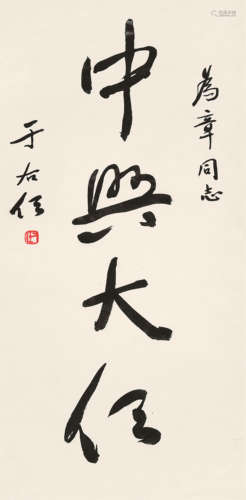 為章同志
中興大任
于右任